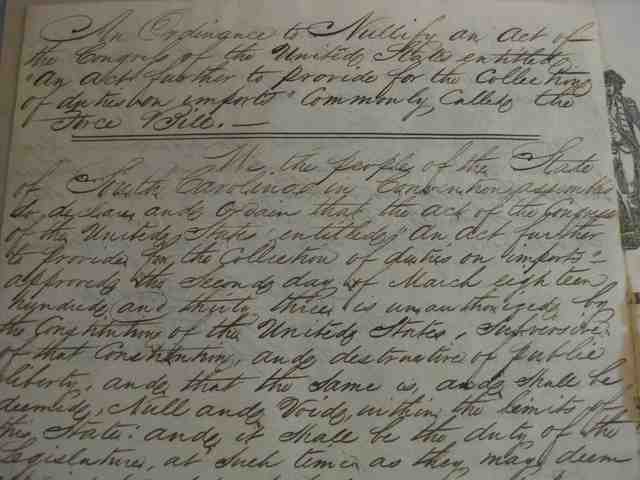 An Ordinance to Nullify an act of
the Congress of the United States entitled
"An act further to provide for the Collection
of duties on imports" Commonly Called the
Force Bill. —
We, the people of the State
of South Carolina in Convention assembled
do, declare and Ordain that the act of the Congress
of the United States entitled, "An act further
to provide for the Collection of duties on imports"
approved the Second day of March eighteen
hundred and thirty three is unauthorized by
the Constitution of the United States, Subversive
of that Constitution, and destructive of public
liberty, and that the same is, and shall be
deemed, Null and Void, within the limits of
this State: and it shall be the duty of the
Legislature, at such time as they may deem